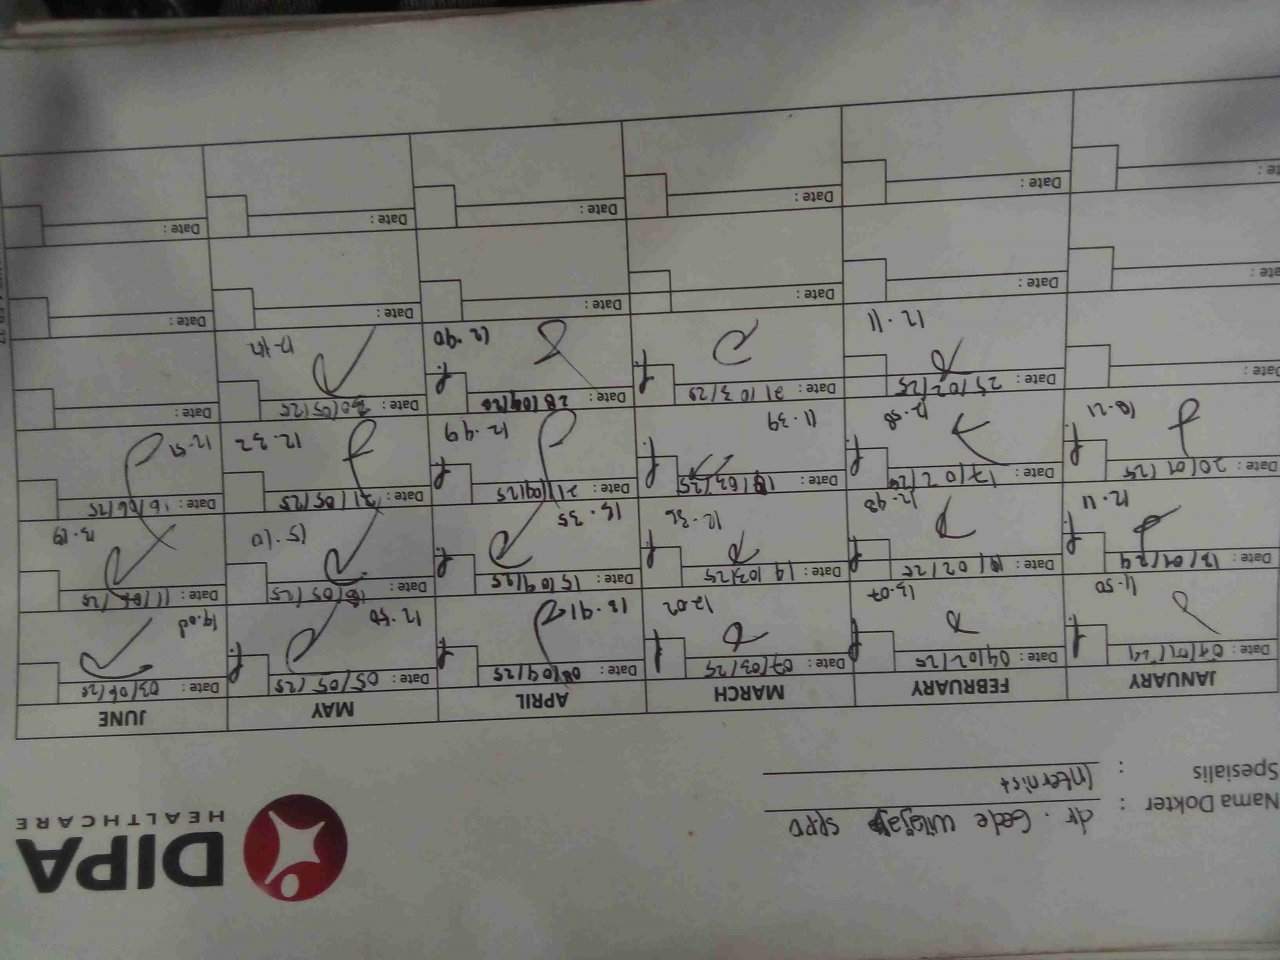 DIPA
HEALTHCARE
Nama Dokter : dr. Gede SPPD
Spesialis : Internist
JANUARY FEBRUARY MARCH APRIL MAY JUNE
Date: Date: 04/02/25 Date: 07/03/25 Date: 08/04/25 Date: 05/05/25 Date: 03/06/25
11.50 13.07 12.02 13.41 12.50 14.08
Date: 13/01/24 Date: 02/25 Date: 14/03/25 Date: 15/04/25 Date: /05/25 Date: 11/06/25
12.11 12.48 12.36 13.35 15.10 13.19
Date: 20/01/25 Date: 17/02/25 Date: /03/25 Date: 21/04/25 Date: 21/05/25 Date: 16/06/25
10.21 12.58 11.39 12.49 12.32 12.51
Date: Date: 25/02/25 Date: 21/03/25 Date: 28/04/25 Date: /05/25 Date:
12.11 12.40 12.42
Date: Date: Date: Date: Date: Date:
Date: Date: Date: Date: Date: Date: